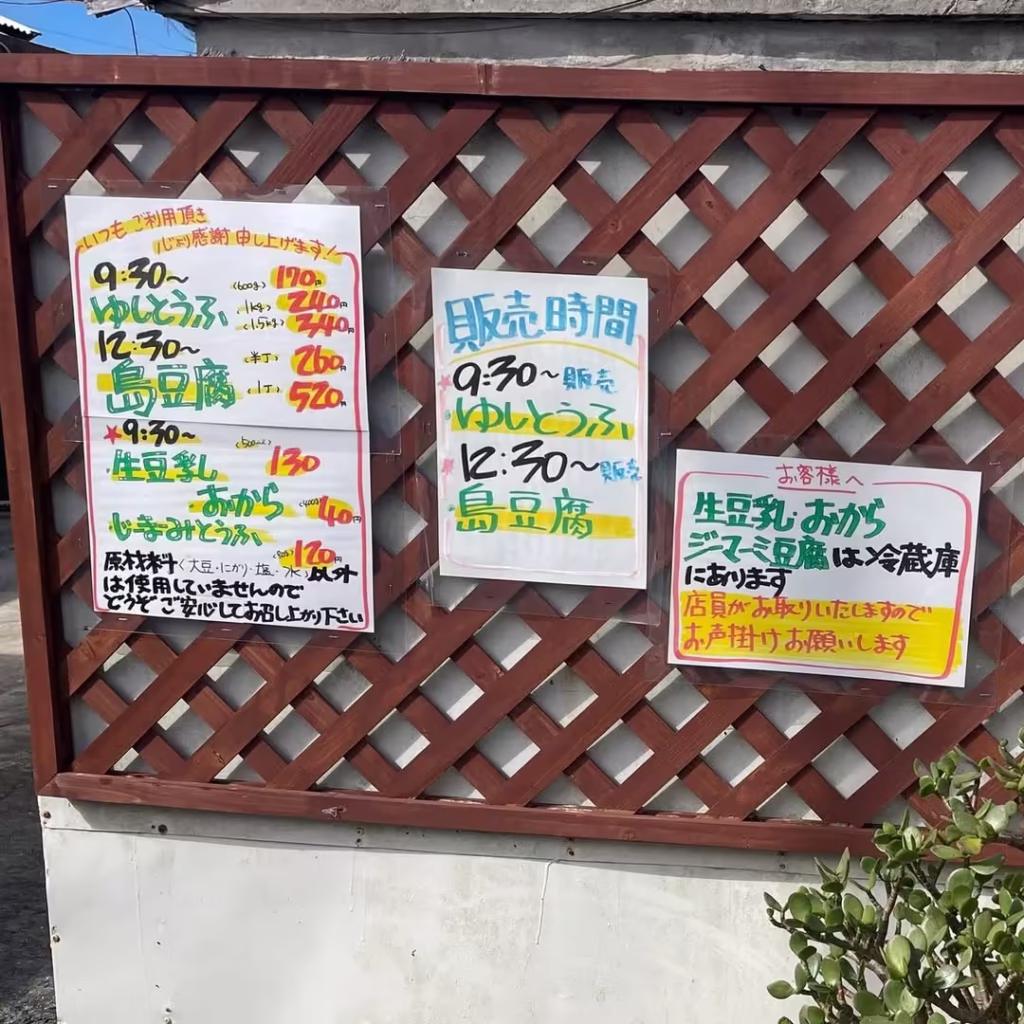 いつもご利用頂き
心より感謝申し上げます!
9:30~ (600g) 170円
ゆしとうふ (1kg) 240円
(1.5kg) 340円
12:30~ (半丁) 260円
島豆腐 (1丁) 520円
★9:30~ (500cc)
生豆乳 130
おから (400g) 40円
じーまーみとうふ 120円
原材料(大豆・にがり・塩・水)以外
は使用していませんので
どうぞご安心してお召し上がり下さい
販売時間
★9:30~販売
ゆしとうふ
★12:30~販売
島豆腐
お客様へ
生豆乳・おから
ジーマーミ豆腐は冷蔵庫
にあります
店員がお取りいたしますので
お声掛けお願いします